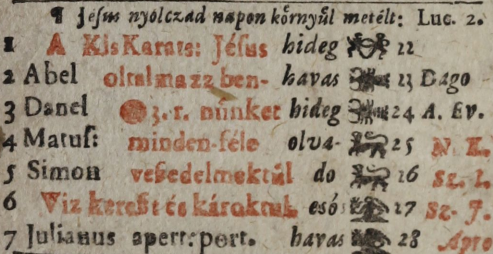 ¶ Jésus nyólczad napon kőrnyűl metélt: Luc. 2.
1 A Kis Karats: Jésus hideg 22
2 Abel oltalmazz ben- havas 23 Dago
3 Danel 3. r. nűnket hideg 24 A. Ev.
4 Matus: minden-féle olva- 25 N. K.
5 Simon veßedelmektűl do 26 Sz. I.
6 Viz kereßt és károktul esős 27 Sz. J.
7 Julianus apert: port. havas 28 Apro